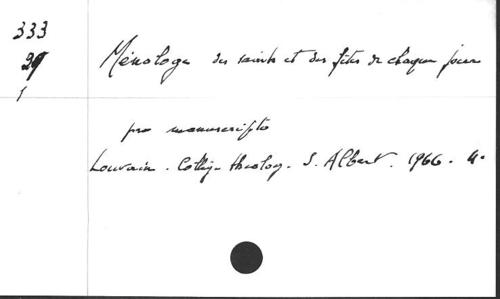 333
29
1
Ménologe des saints et des fêtes de chaque jour
pro manuscripto
Louvain. Colleg. theolog. S. Albert. 1966. 4°